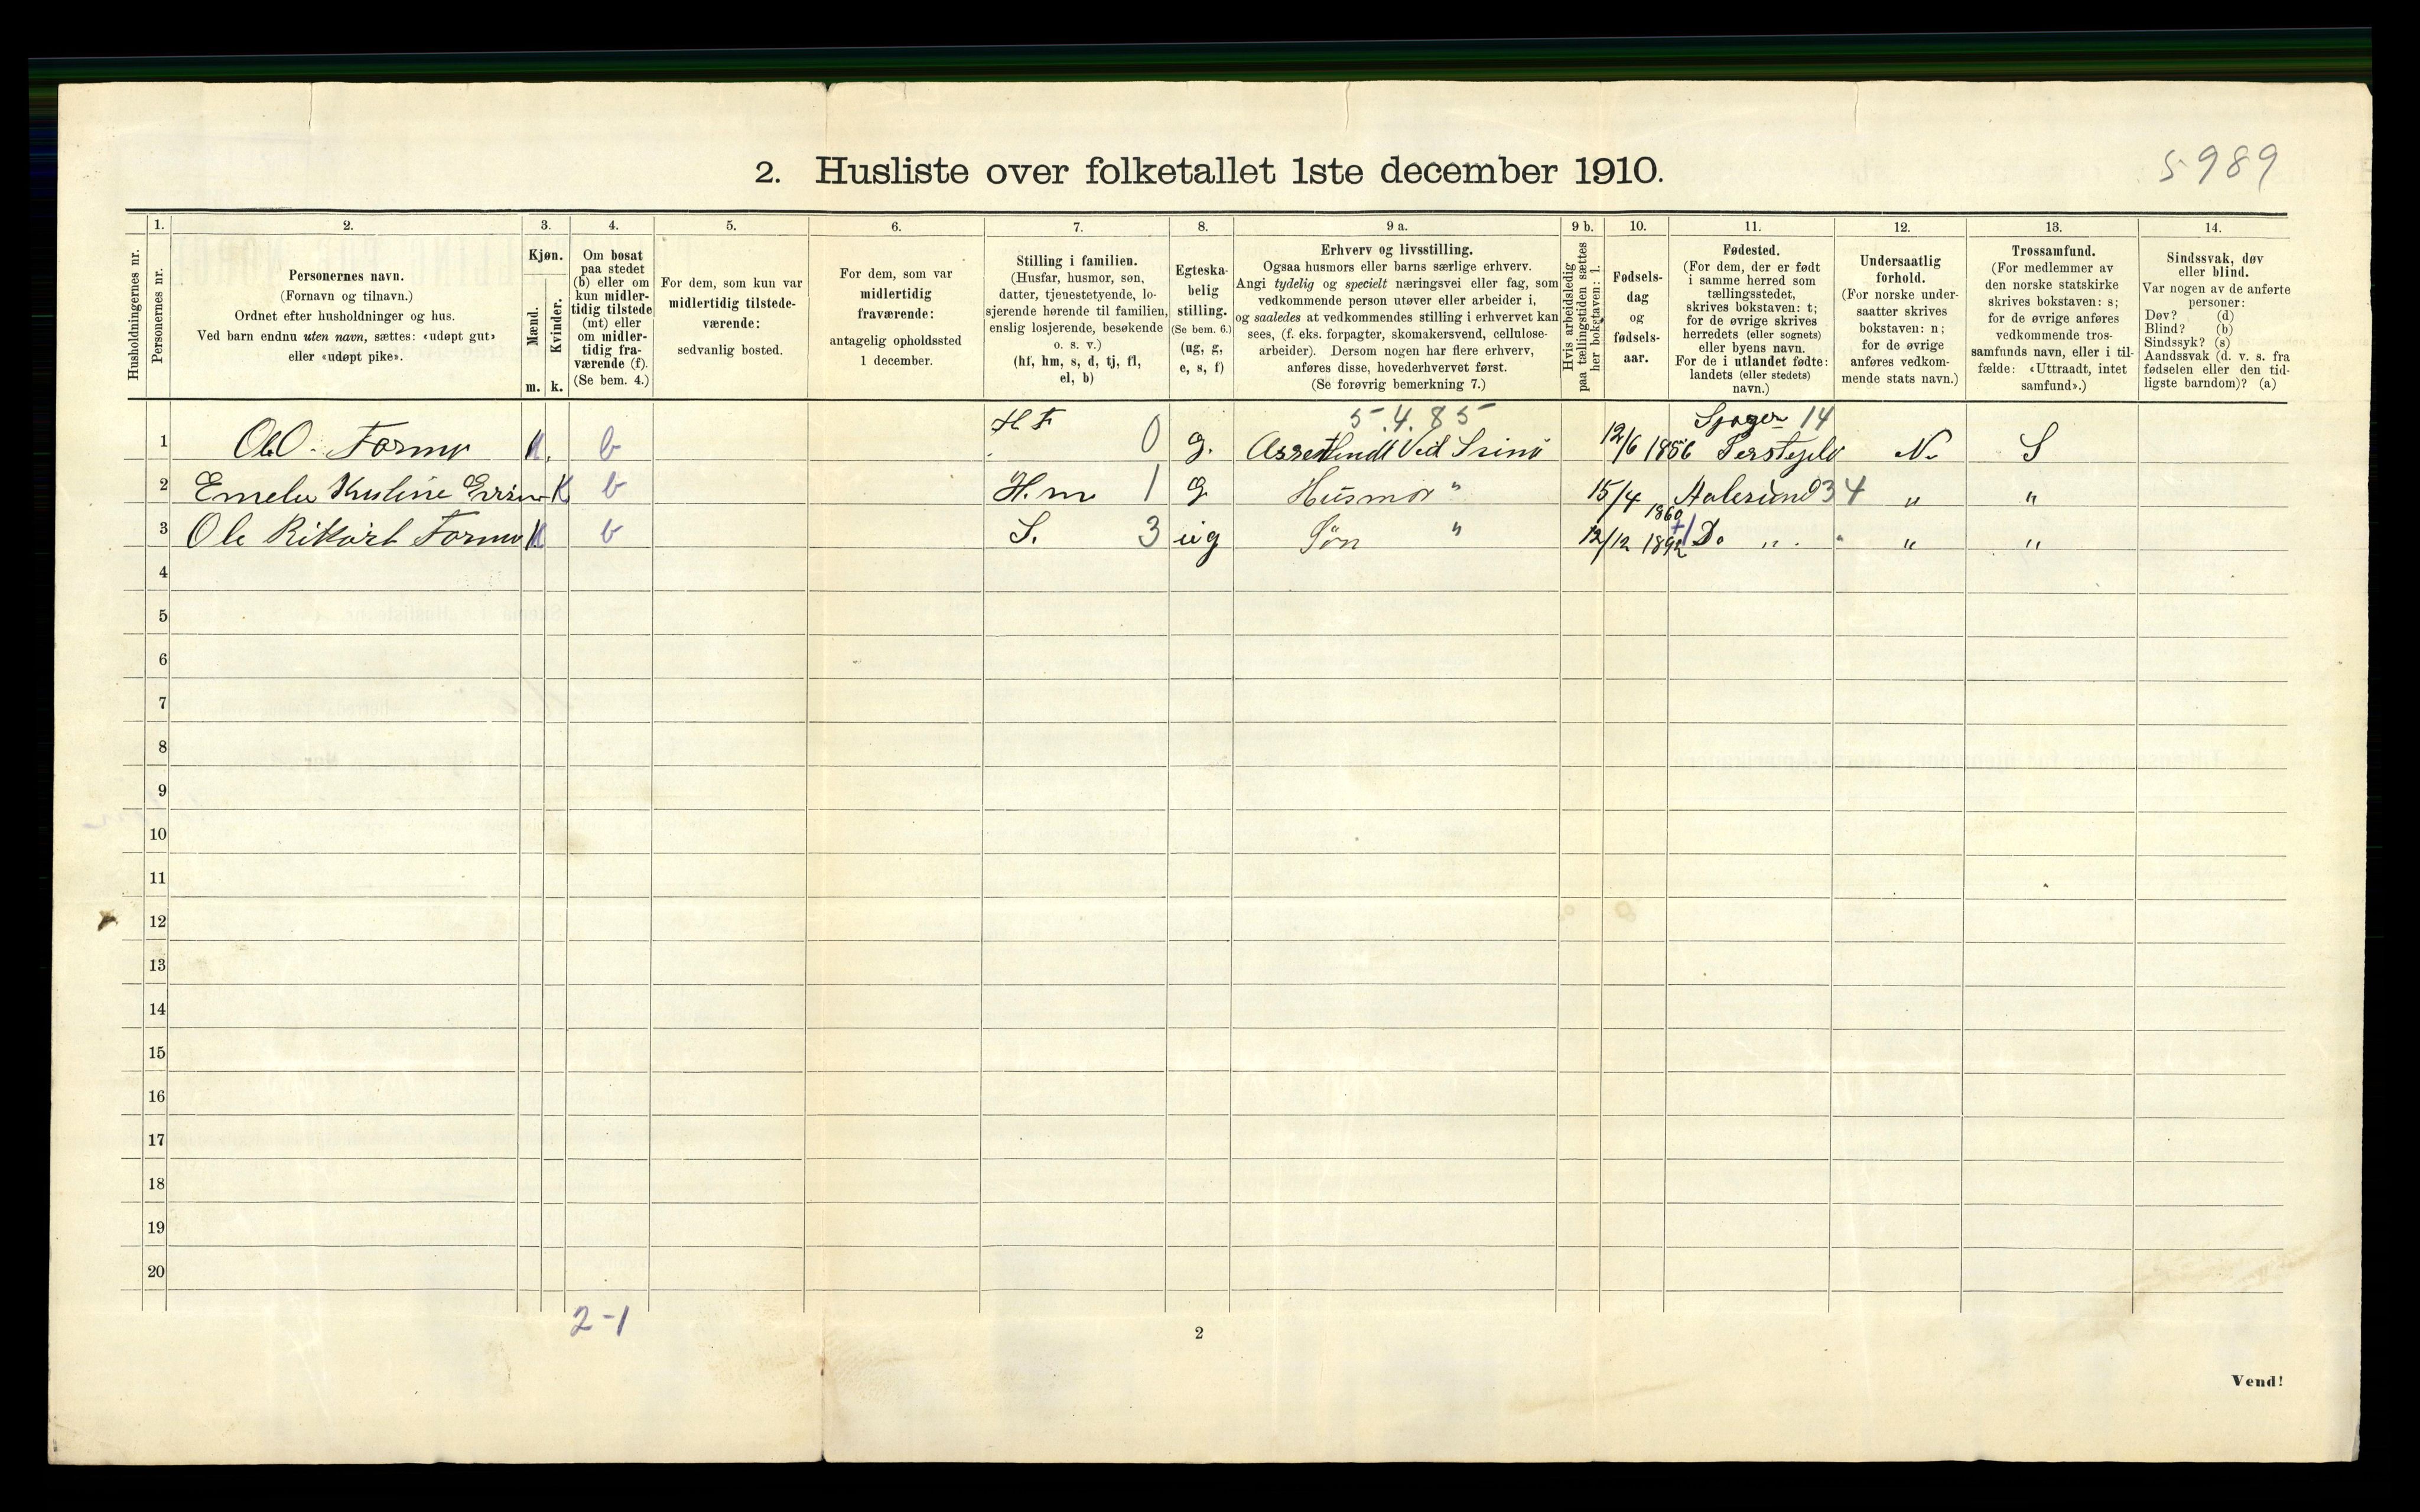 2. Husliste over folketallet 1ste december 1910.
5989
Husholdningernes nr.
1.
Personernes nr.
2.
Personernes navn.
(Fornavn og tilnavn.)
Ordnet efter husholdninger og hus.
Ved barn endnu uten navn, sættes: «udøpt gut»
eller «udøpt pike».
3.
Kjøn.
Mænd.
Kvinder.
m. k.
4.
Om bosat
paa stedet
(b) eller om
kun midler-
tidig tilstede
(mt) eller
om midler-
tidig fra-
værende (f).
(Se bem. 4.)
5.
For dem, som kun var
midlertidig tilstede-
værende:
sedvanlig bosted.
6.
For dem, som var
midlertidig
fraværende:
antagelig opholdssted
1 december.
7.
Stilling i familien.
(Husfar, husmor, søn,
datter, tjenestetyende, lo-
sjerende hørende til familien,
enslig losjerende, besøkende
o. s. v.)
(hf, hm, s, d, tj, fl,
el, b)
8.
Egteska-
belig
stilling.
(Se bem. 6.)
(ug, g,
e, s, f)
9 a.
Erhverv og livsstilling.
Ogsaa husmors eller barns særlige erhverv.
Angi tydelig og specielt næringsvei eller fag, som
vedkommende person utøver eller arbeider i,
og saaledes at vedkommendes stilling i erhvervet kan
sees, (f. eks. forpagter, skomakersvend, cellulose-
arbeider). Dersom nogen har flere erhverv,
anføres disse, hovederhvervet først.
(Se forøvrig bemerkning 7.)
9 b.
Hvis arbeidsledig
paa tællingstiden sættes
her bokstaven: l.
10.
Fødsels-
dag
og
fødsels-
aar.
11.
Fødested.
(For dem, der er født
i samme herred som
tællingsstedet,
skrives bokstaven: t;
for de øvrige skrives
herredets (eller sognets)
eller byens navn.
For de i utlandet fødte:
landets (eller stedets)
navn.)
12.
Undersaatlig
forhold.
(For norske under-
saatter skrives
bokstaven: n;
for de øvrige
anføres vedkom-
mende stats navn.)
13.
Trossamfund.
(For medlemmer av
den norske statskirke
skrives bokstaven: s;
for de øvrige anføres
vedkommende tros-
samfunds navn, eller i til-
fælde: «Uttraadt, intet
samfund».)
14.
Sindssvak, døv
eller blind.
Var nogen av de anførte
personer:
Døv? (d)
Blind? (b)
Sindssyk? (s)
Aandssvak (d. v. s. fra
fødselen eller den tid-
ligste barndom)? (a)
H F 5.4.85 14
1 Formo b 0 g. Ved 12/6 1856 N. S
2 Emelie b H.m 1 g Husmor " 15/4 1860 Aalesund 34 " "
3 Ole Formo b S. 3 ug Søn " 12/12 1892 Do " " "
4
5
6
7
8
9
10
11
12
13
14
15
16
17
18
19
20
2-1
2
Vend!